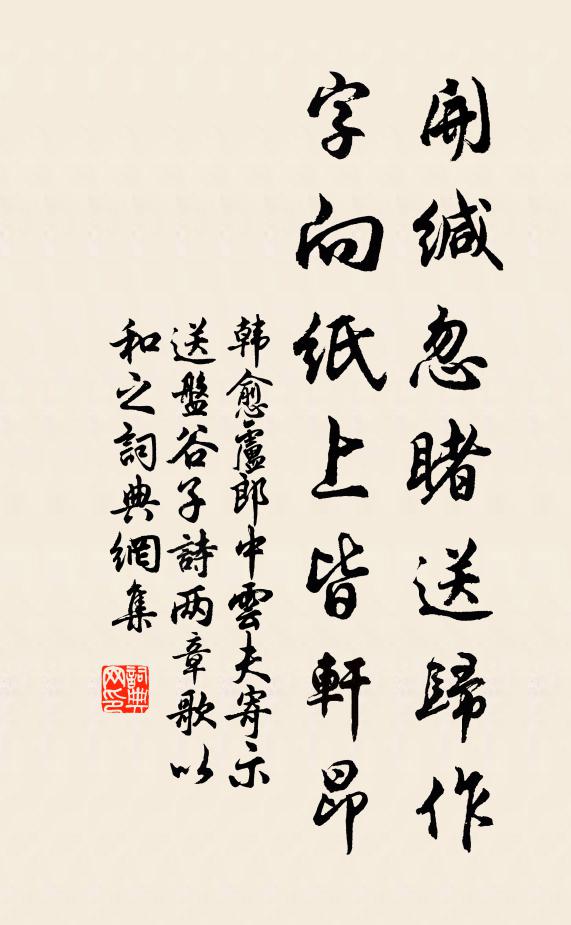 開緘忽睹送歸作
字向紙上皆軒昂
韩愈盧郎中雲夫寄示
送盤谷子詩两章歌以
和之詞典網集
詞典
网印